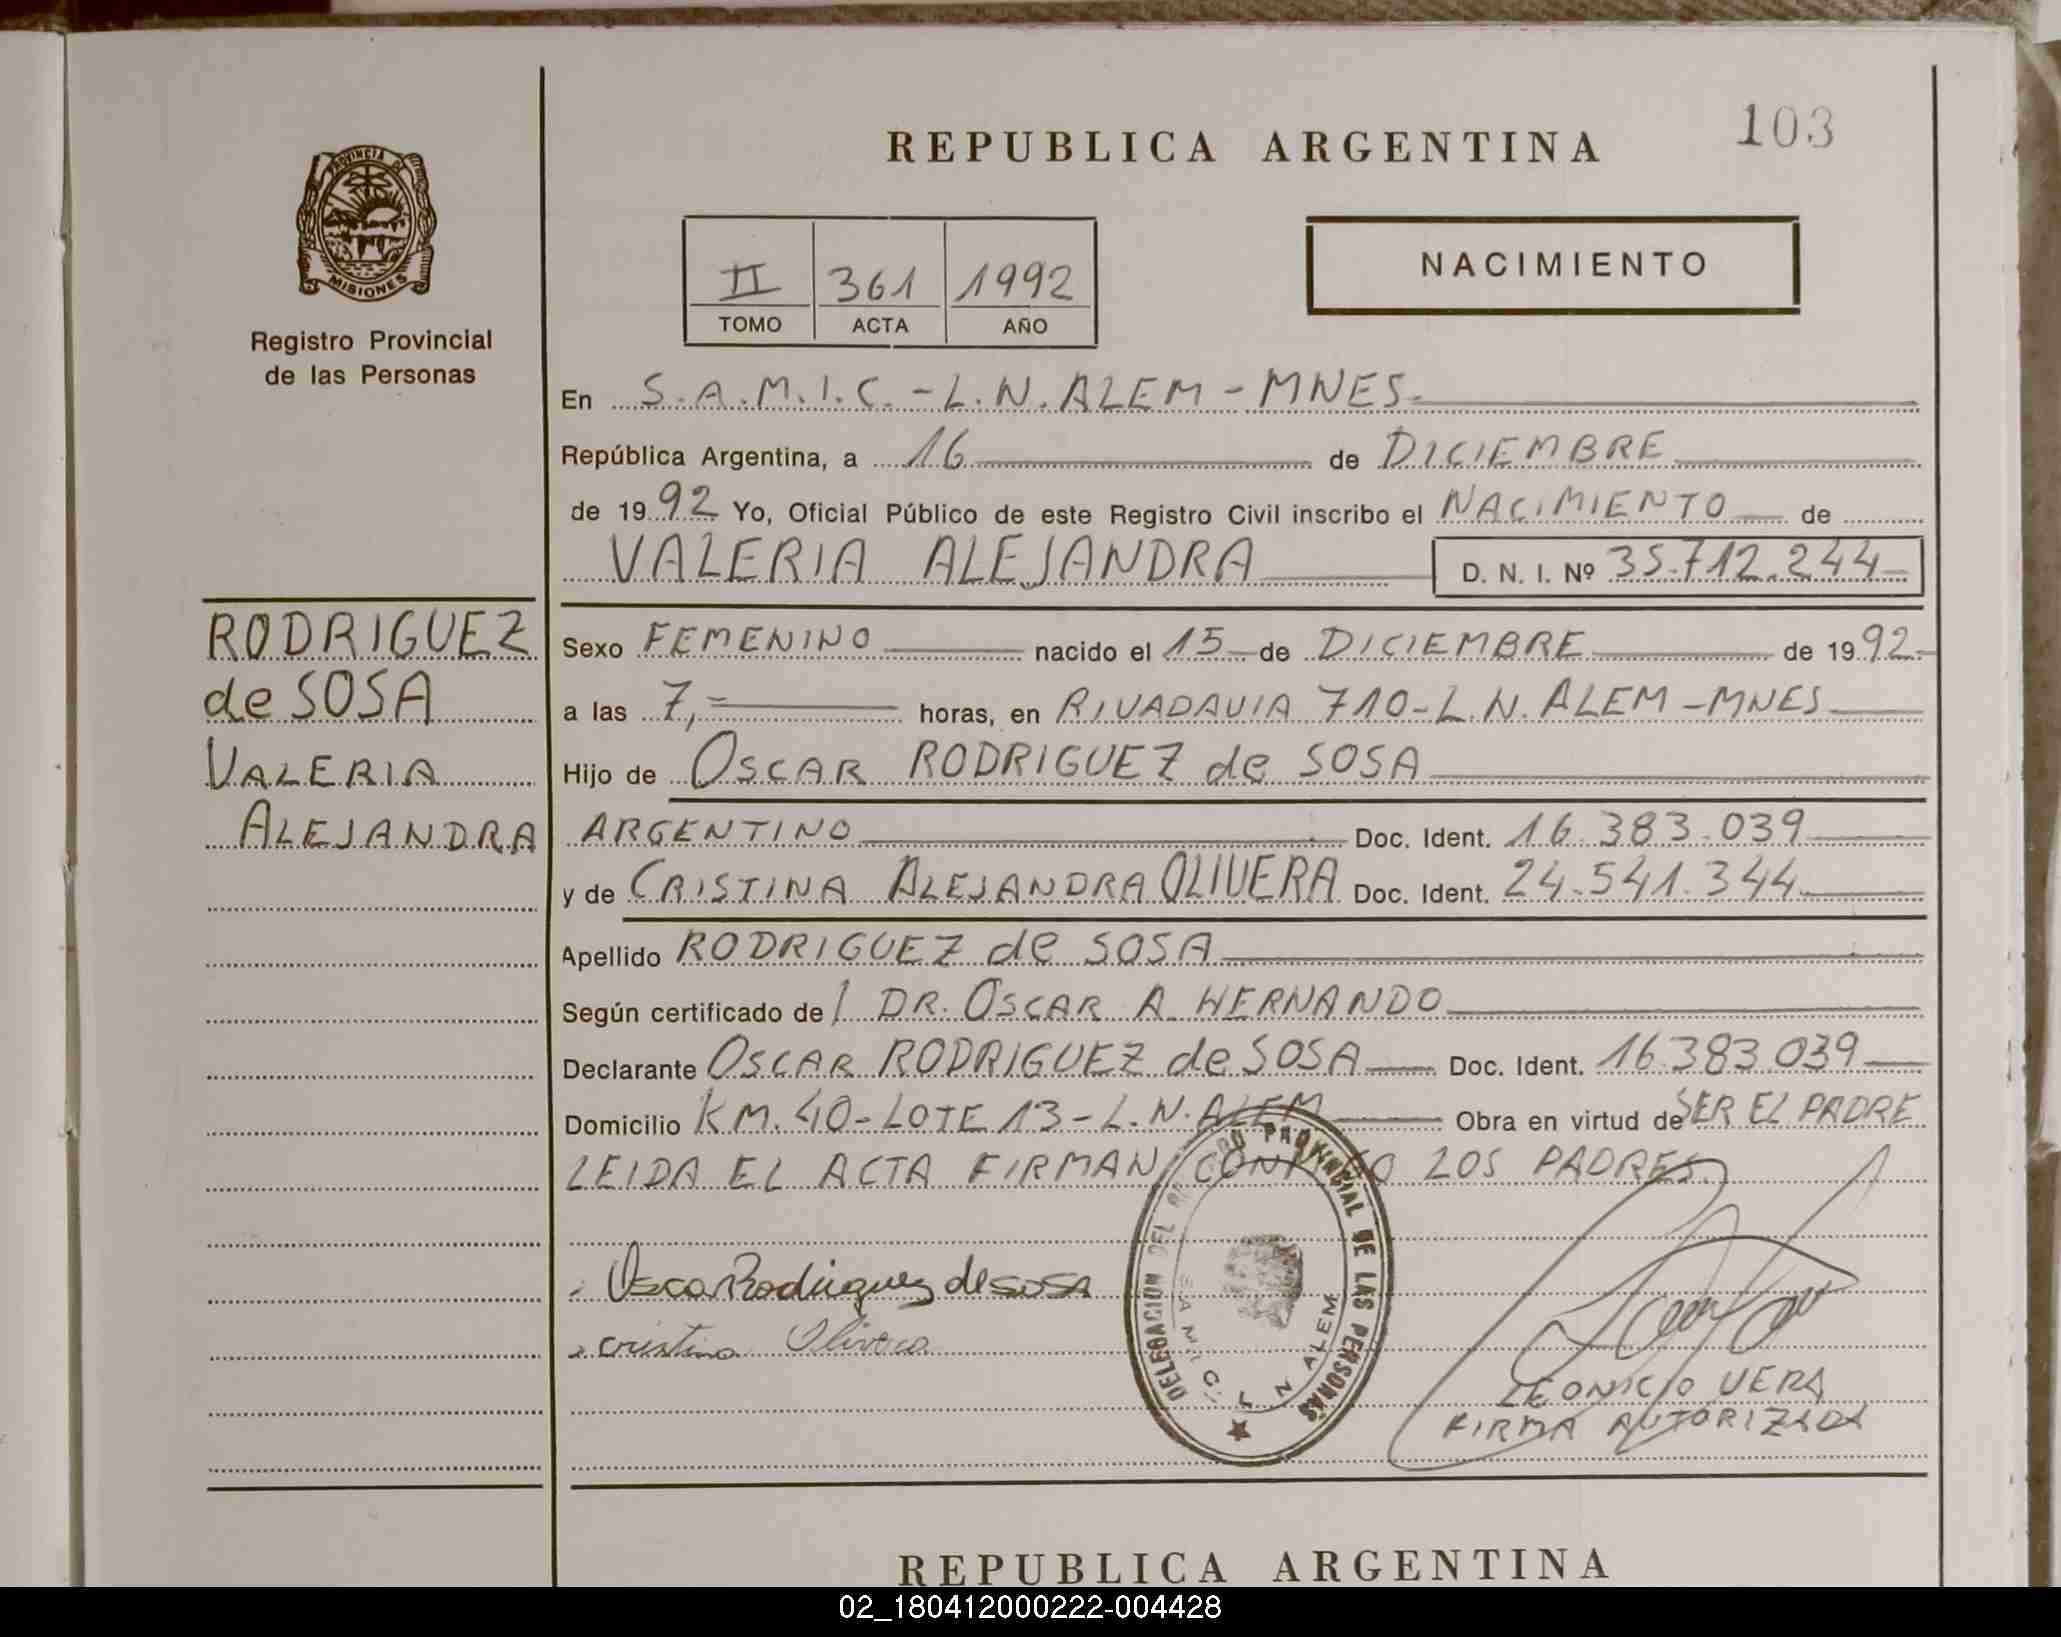 103
REPUBLICA ARGENTINA
PROVINCIA DE
MISIONES
Registro Provincial
de las Personas
II 361 1992
TOMO ACTA AÑO
NACIMIENTO
En S.A.M.I.C. - L.N. ALEM - MNES.
República Argentina, a 16 de DICIEMBRE
de 1992 Yo, Oficial Público de este Registro Civil inscribo el NACIMIENTO de
VALERIA ALEJANDRA D. N. I. Nº 35.712.244
RODRIGUEZ
de SOSA
VALERIA
ALEJANDRA
Sexo FEMENINO nacido el 15 de DICIEMBRE de 1992
a las 7,= horas, en RIVADAVIA 710 - L.N. ALEM - MNES
Hijo de OSCAR RODRIGUEZ de SOSA
ARGENTINO Doc. Ident. 16.383.039
y de CRISTINA ALEJANDRA OLIVERA Doc. Ident. 24.541.344
Apellido RODRIGUEZ de SOSA
Según certificado de / DR. OSCAR A HERNANDO
Declarante OSCAR RODRIGUEZ de SOSA Doc. Ident. 16.383.039
Domicilio KM. 40 - LOTE 13 - L.N. ALEM Obra en virtud de SER EL PADRE
LEIDA EL ACTA FIRMAN CONMIGO LOS PADRES.
DELEGACION DEL REGISTRO PROVINCIAL DE LAS PERSONAS
S.A.M.I.C. L N ALEM
Oscar Rodriguez de sosa
cristina Olivera
LEONICIO VERA
FIRMA AUTORIZADA
REPUBLICA ARGENTINA
02_180412000222-004428